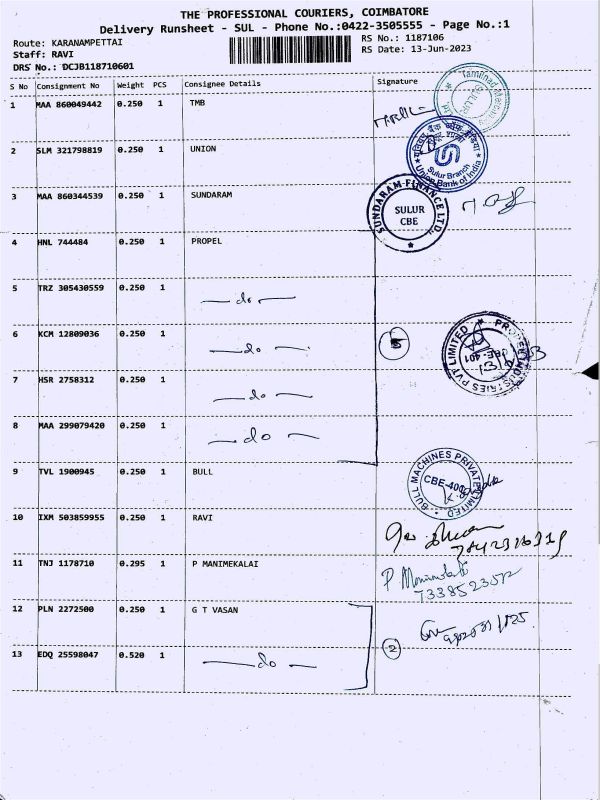 THE PROFESSIONAL COURIERS, COIMBATORE
Delivery Runsheet - SUL - Phone No.:0422-3505555 - Page No.:1
Route: KARANAMPETTAI
RS No.: 1187106
Staff: RAVI
RS Date: 13-Jun-2023
DRS No.: DCJB118710601
S No Consignment No Weight PCS Consignee Details Signature
1 MAA 860049442 0.250 1 TMB
SULUR
2 SLM 321798819 0.250 1 UNION
Sulur Branch
Union Bank of India
3 MAA 860344539 0.250 1 SUNDARAM
SUNDARAM FINANCE LTD.,
SULUR
CBE
4 HNL 744484 0.250 1 PROPEL
5 TRZ 305430559 0.250 1
— do —
6 KCM 12809036 0.250 1
— do —
5
7 HSR 2758312 0.250 1
— do —
8 MAA 299079420 0.250 1
— do —
9 TVL 1900945 0.250 1 BULL
BULL MACHINES PRIVATE LIMITED
10 IXM 503859955 0.250 1 RAVI
11 TNJ 1178710 0.295 1 P MANIMEKALAI
12 PLN 2272500 0.250 1 G T VASAN
2
13 EDQ 25598047 0.520 1
— do —